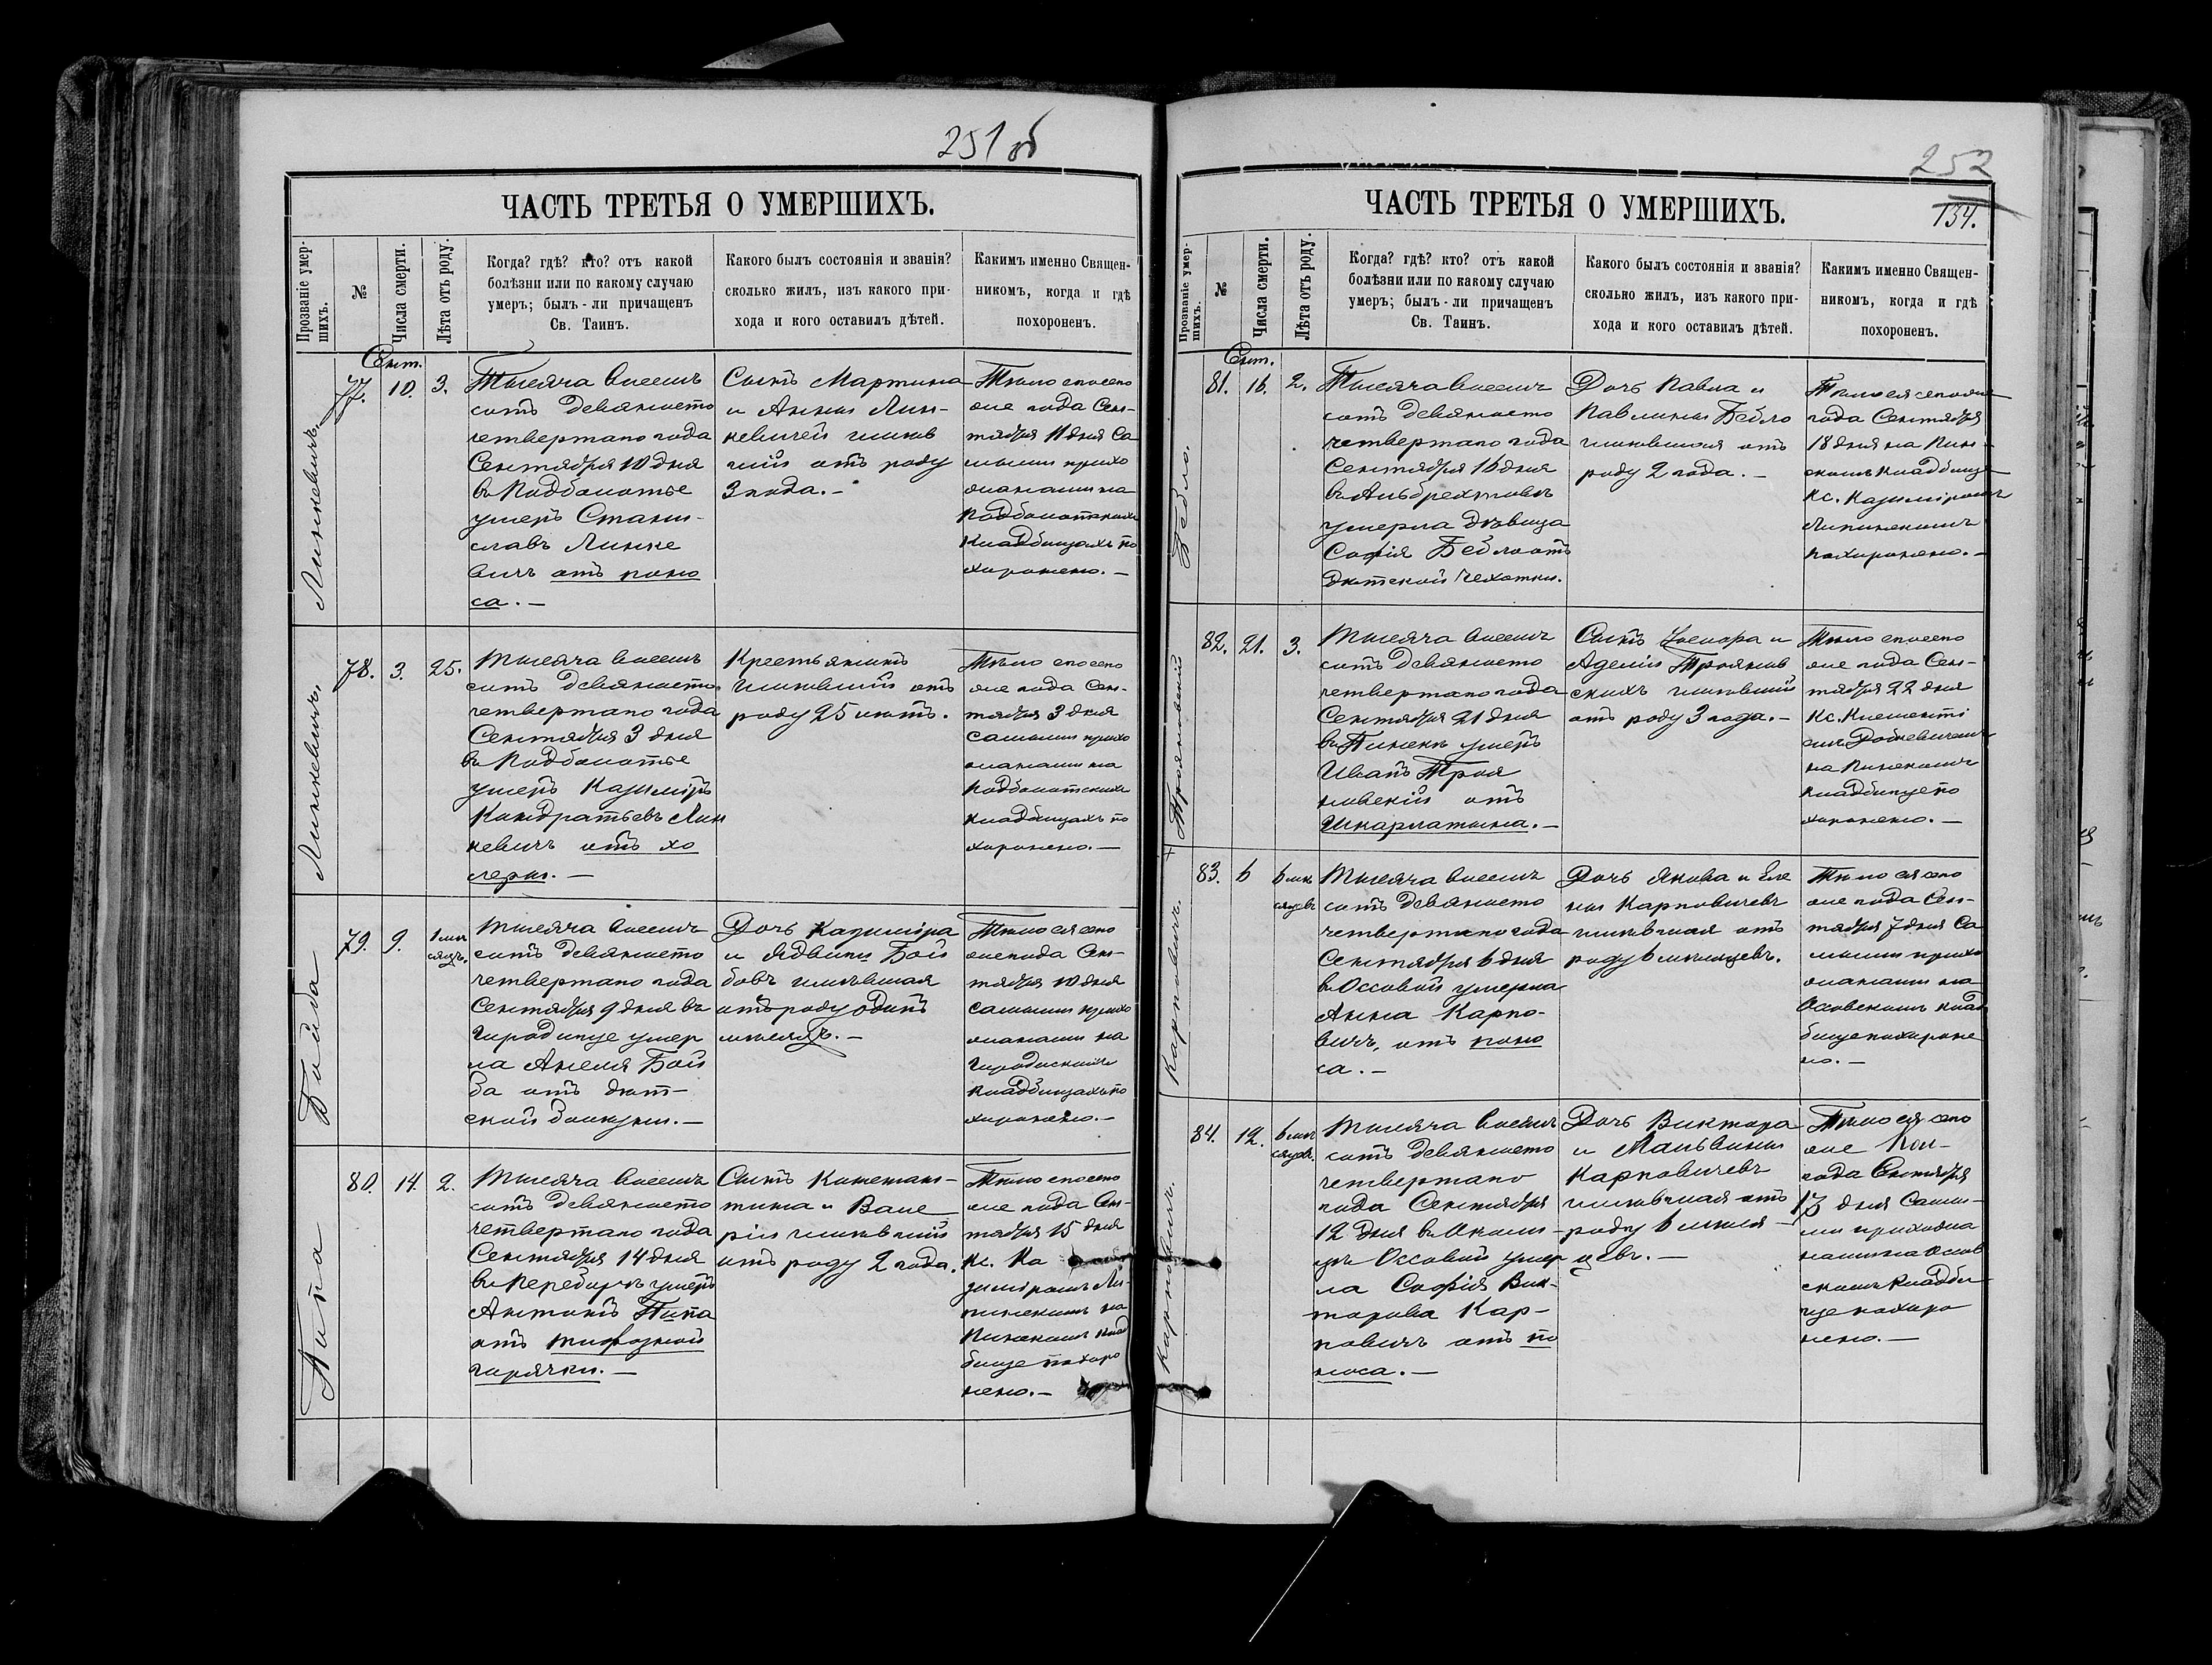 251 об
ЧАСТЬ ТРЕТЬЯ О УМЕРШИХЪ.
Прозваніе умер-
шихъ.
№
Числа смерти.
Лѣта отъ роду.
Когда? гдѣ? кто? отъ какой
болѣзни или по какому случаю
умеръ; былъ-ли причащенъ
Св. Таинъ.
Какого былъ состоянія и званія?
сколько жилъ, изъ какого при-
хода и кого оставилъ дѣтей.
Какимъ именно Священ-
никомъ, когда и гдѣ
похороненъ.
Сент.
Линкевичъ.
77.
10.
3.
Тысяча восемь
сотъ девяносто
четвертаго года
Сентября 10 дня
въ Подболотье
умеръ Стани-
славъ Линке
вичъ отъ поно
са.—
Сынъ Мартина
и Анны Лин-
кевичей жив
шій отъ роду
3 года.—
Тѣло его сего
же года Сен-
тября 11 дня Са
мыми прихо
жанами на
Подболотскихъ
Кладбищахъ по
хоронено.—
Линкевичъ.
78.
3.
25.
Тысяча восемь
сотъ девяносто
четвертаго года
Сентября 3 дня
въ Подболотье
умеръ Казиміръ
Кондратьевъ Лин
кевичъ отъ хо
леры.—
Крестьянинъ
жившій отъ
роду 25 лѣтъ.
Тѣло его сего
же года Сен-
тября 3 дня
самыми прихо
жанами на
Подболотскихъ
кладбищахъ по
хоронено.—
Бойба
79.
9.
1 мѣ
сяцъ.
Тысяча восемь
сотъ девяносто
четвертаго года
Сентября 9 дня въ
Городище умер
ла Анеля Бой
ба отъ дѣт-
ской болѣзни.—
Дочь Казиміра
и Ядвиги Бой
бовъ жившая
отъ роду одинъ
мѣсяцъ.—
Тѣло ея сего
же года Сен-
тября 10 дня
самыми прихо
жанами на
Городискихъ
кладбищахъ по
хоронено.—
Пипа
80.
14.
2.
Тысяча восемь
сотъ девяносто
четвертаго года
Сентября 14 дня
въ Перебирѣ умеръ
Антонъ Пипа
отъ тифозной
горячки.—
Сынъ Констан-
тина и Вале
ріи жившій
отъ роду 2 года.
Тѣло его сего
же года Сен-
тября 15 дня
Кс. Ка
зиміромъ Ли-
пинскимъ на
Пинскомъ клад
бище похоро
нено.—
252
134.
ЧАСТЬ ТРЕТЬЯ О УМЕРШИХЪ.
Прозваніе умер-
шихъ.
№
Числа смерти.
Лѣта отъ роду.
Когда? гдѣ? кто? отъ какой
болѣзни или по какому случаю
умеръ; былъ-ли причащенъ
Св. Таинъ.
Какого былъ состоянія и званія?
сколько жилъ, изъ какого при-
хода и кого оставилъ дѣтей.
Какимъ именно Священ-
никомъ, когда и гдѣ
похороненъ.
Сент.
Бебло.
81.
16.
2.
Тысяча восемь
сотъ девяносто
четвертаго года
Сентября 16 дня
въ Альбрехтовѣ
умерла дѣвица
Софія Бебло отъ
дѣтской чехотки.
Дочь Павла и
Павлины Бебло
жившая отъ
роду 2 года.—
Тѣло ея сего же
года Сентября
18 дня на Пин-
скомъ Кладбище
Кс. Казиміромъ
Липинскимъ
похоронено.—
Трояновскій
82.
21.
3.
Тысяча восемь
сотъ девяносто
четвертаго года
Сентября 21 дня
въ Пинскѣ умеръ
Иванъ Троя
новскій отъ
Шкарлатына.—
Сынъ
и
Аделіи Троянов
скихъ жившій
отъ роду 3 года.—
Тѣло его сего
же года Сен-
тября 22 дня
Кс. Клементі
емъ
на Пинскомъ
кладбище по
хоронено.—
Карповичъ.
83.
6
6 мѣ
сяцевъ
Тысяча восемь
сотъ девяносто
четвертаго года
Сентября 6 дня
въ Оссовой умерла
Анна Карпо-
вичъ, отъ поно
са.—
Дочь Якова и Еле
ны Карповичевъ
жившая отъ
роду 6 мѣсяцевъ.
Тѣло ея сего
же года Сен-
тября 7 дня Са
мыми прихо
жанами на
Осовскомъ клад
бище похороне
но.—
Карповичъ.
84.
12.
6 мѣ
сяцев.
Тысяча восемь
сотъ девяносто
четвертаго
года Сентября
12 дня въ Околи-
цѣ Оссовой умер
ла Софія Вик-
торова Кар-
повичъ отъ по
носа.—
Дочь Виктора
и Мальвины
Карповичевъ
жившая отъ
роду 6 мѣся-
цевъ.—
Тѣло ея сего
же
года Сентября
13 дня Самы-
ми прихожа
нами на Осов
скомъ Кладби
ще похоро
нено.—